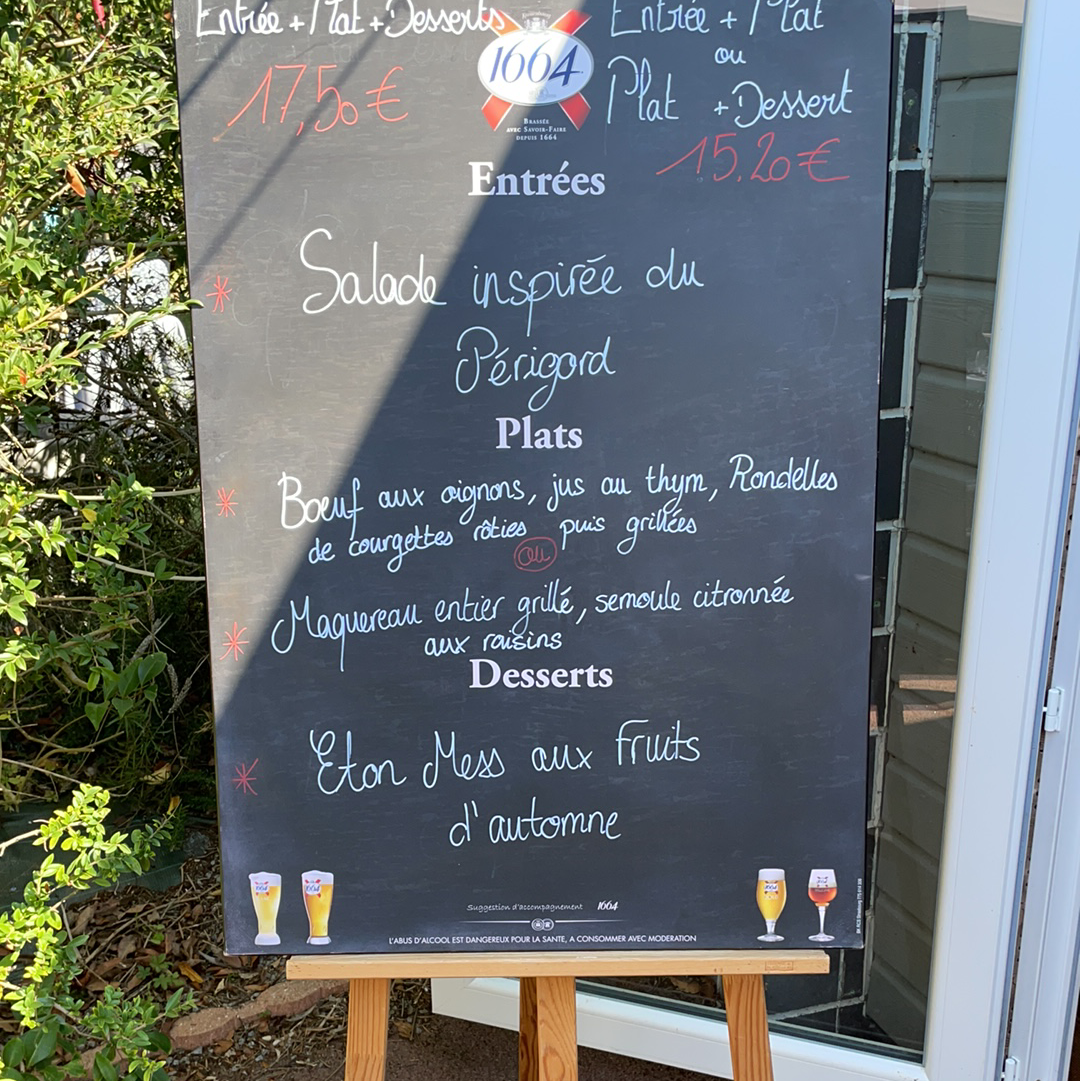 Entrée + Plat + Desserts
17,50 €
1664
BRASSÉE
AVEC SAVOIR-FAIRE
DEPUIS 1664
Entrée + Plat
ou
Plat + Dessert
15.20 €
Entrées
* Salade inspirée du
Périgord
Plats
* Bœuf aux oignons, jus au thym, Rondelles
de courgettes rôties puis grillées
ou
* Maquereau entier grillé, semoule citronnée
aux raisins
Desserts
* Eton Mess aux Fruits
d'automne
1664
1664
Suggestion d'accompagnement 1664
L'ABUS D'ALCOOL EST DANGEREUX POUR LA SANTE, A CONSOMMER AVEC MODERATION